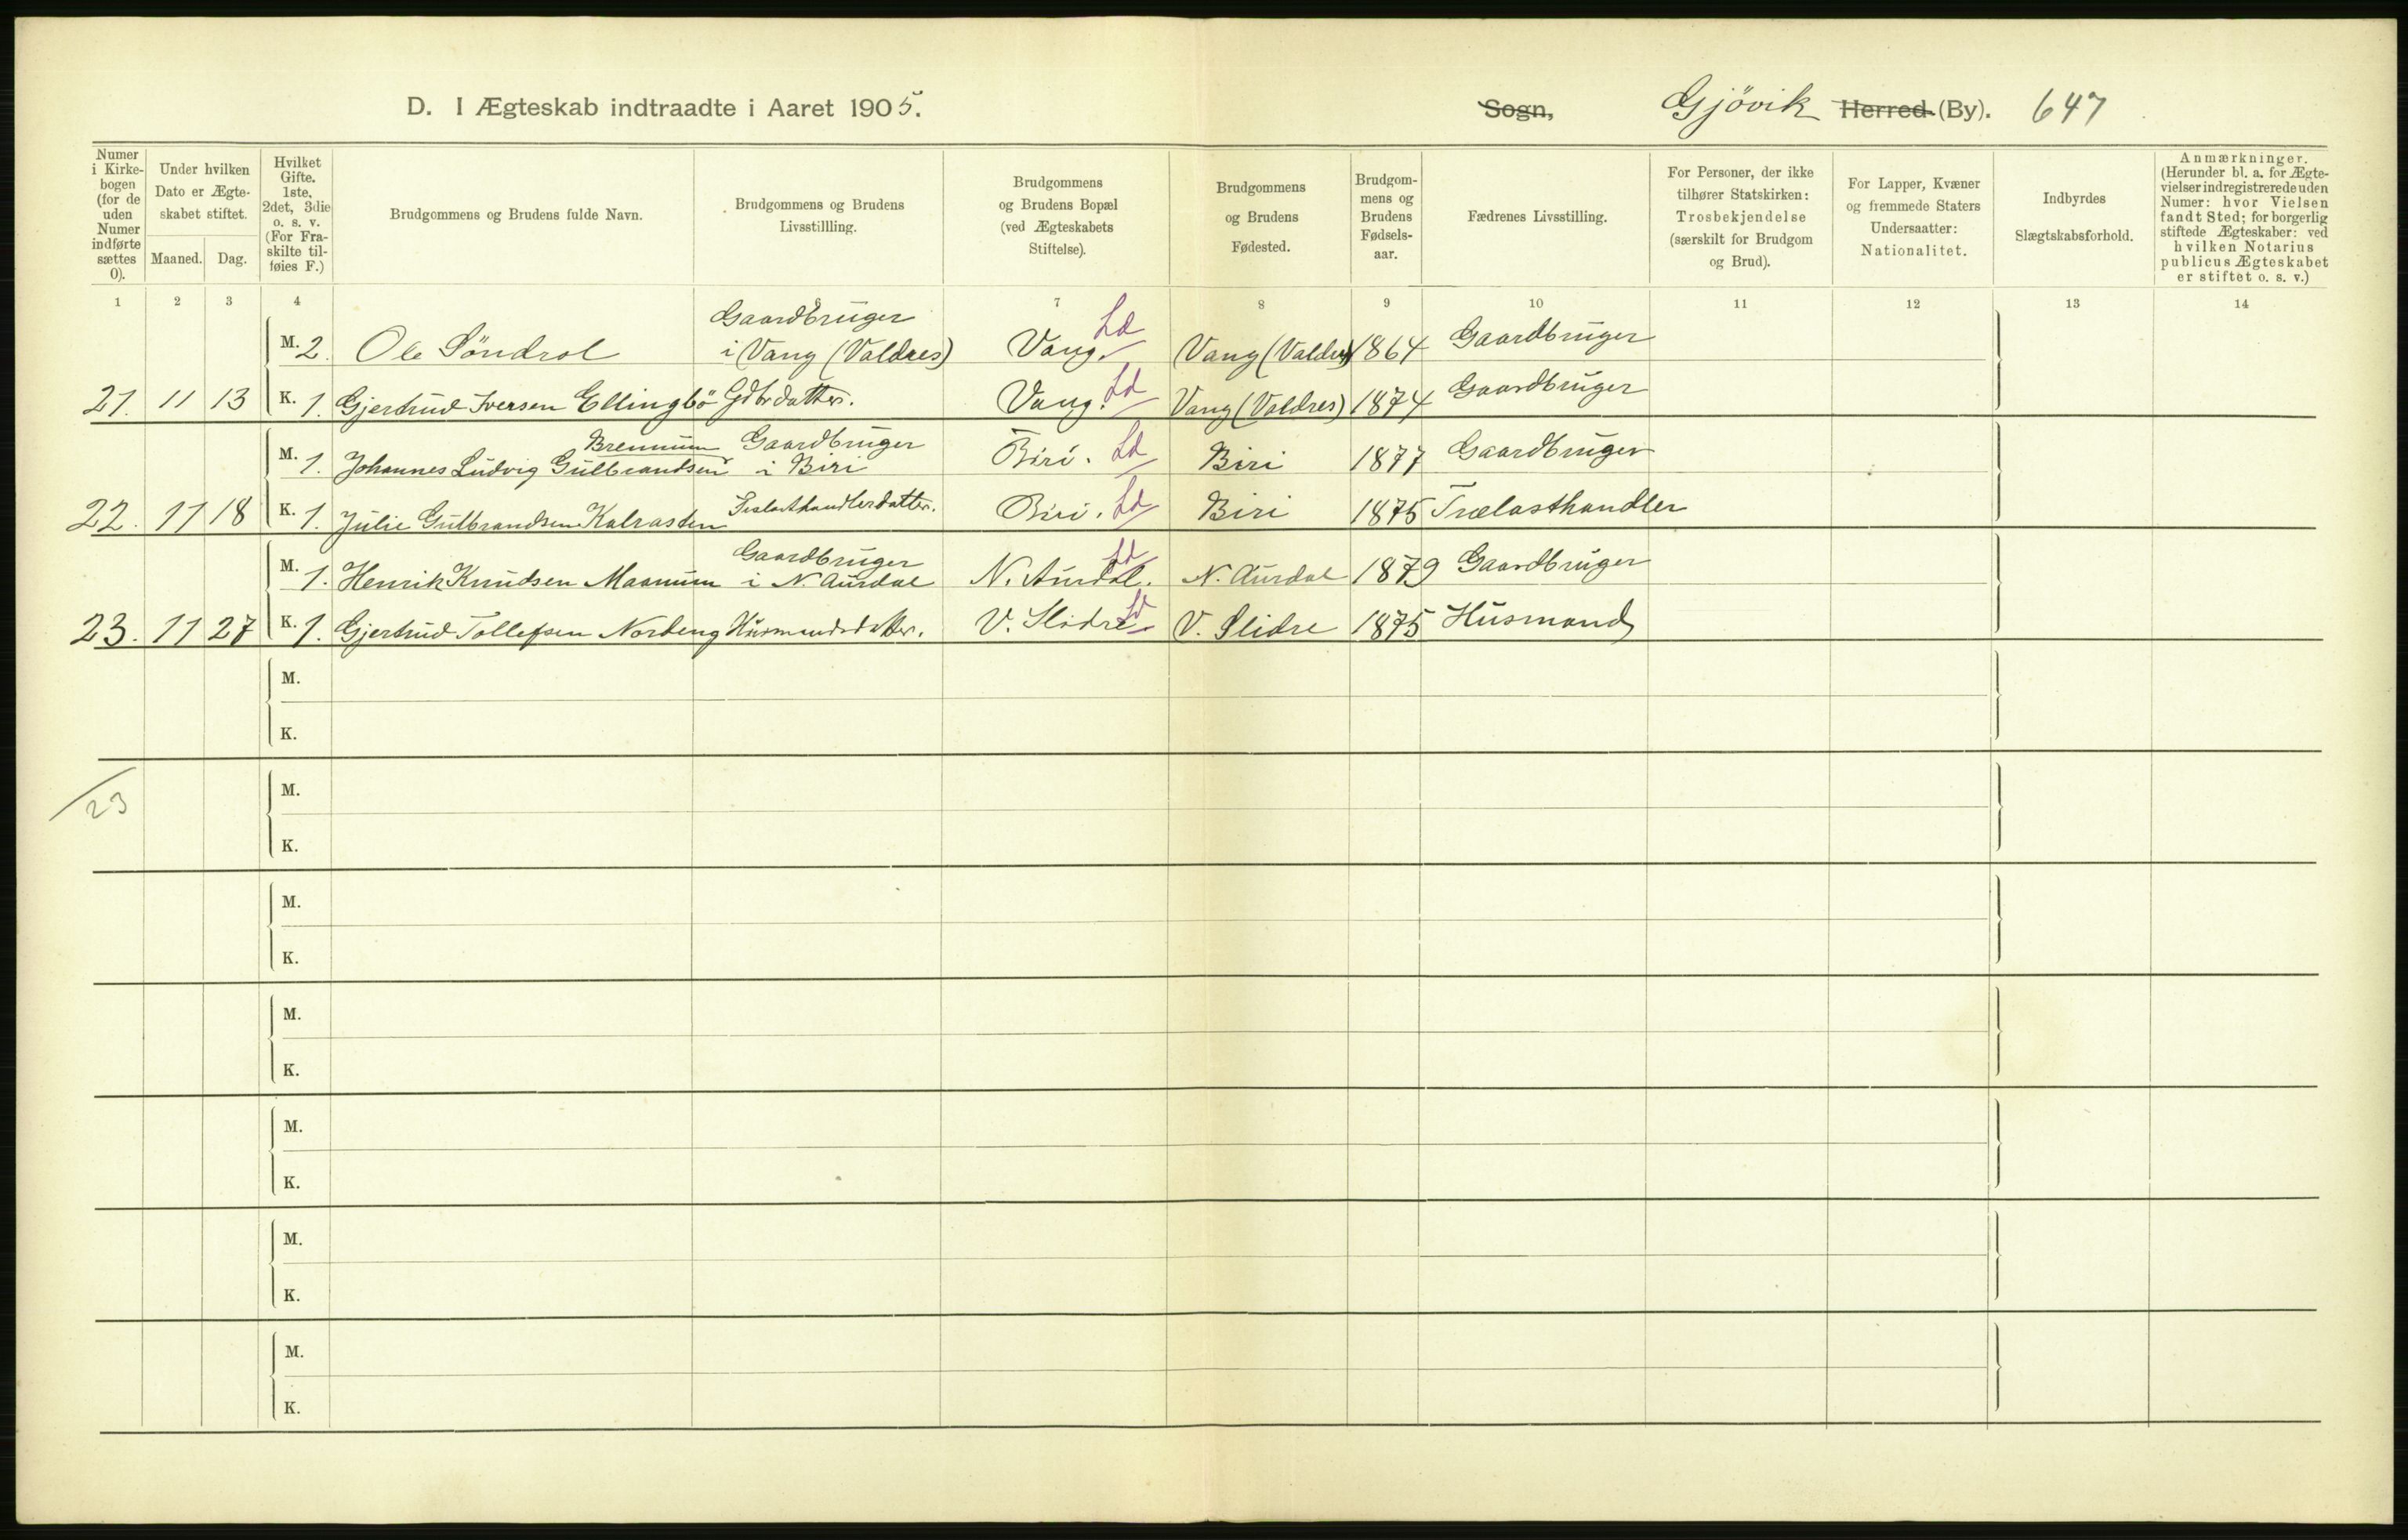 D. I Ægteskab indtraadte i Aaret 1905.
Sogn, Gjövik Herred (By). 647
Numer i Kirkebogen (for de uden Numer indførte sættes 0).
Under hvilken Dato er Ægteskabet stiftet.
Maaned. Dag.
Hvilket Gifte. 1ste, 2det, 3die o. s. v. (For Fraskilte tilføies F.)
Brudgommens og Brudens fulde Navn.
Brudgommens og Brudens Livsstillling.
Brudgommens og Brudens Bopæl (ved Ægteskabets Stiftelse).
Brudgommens og Brudens Fødested.
Brudgommens og Brudens Fødselsaar.
Fædrenes Livsstilling.
For Personer, der ikke tilhører Statskirken: Trosbekjendelse (særskilt for Brudgom og Brud).
For Lapper, Kvæner og fremmede Staters Undersaatter: Nationalitet.
Indbyrdes Slægtskabsforhold.
Anmærkninger. (Herunder bl. a. for Ægtevielser indregistrerede uden Numer: hvor Vielsen fandt Sted; for borgerlig stiftede Ægteskaber: ved hvilken Notarius publicus Ægteskabet er stiftet o. s. v.)
1 2 3 4 7 8 9 10 11 12 13 14
M. 2. Ole Söndrol Gaardbruger i Vang (Valdres) Vang. Ld Vang (Valdres) 1864 Gaardbruger
21. 11 13 K. 1. Gjertrud Iversen Ellingbö Gdbrdatter. Vang. Ld Vang (Valdres) 1874 Gaardbruger
M. 1. Johannes Ludvig Gulbrandsen Brennum Gaardbruger i Biri Biri. Ld Biri 1877 Gaardbruger
22. 11 18 K. 1. Julie Gulbrandsen Kalrasten Biri. Ld Biri 1875 Trælasthandler
M. 1. Henrik Knudsen Maanum Gaardbruger i N. Aurdal N. Aurdal. Ld N. Aurdal 1879 Gaardbruger
23. 11 27 K. 1. Gjertrud Tollefsen Nordeng Husmandsdatter. V. Slidre Ld V. Slidre 1875 Husmand
M.
K.
23
M.
K.
M.
K.
M.
K.
M.
K.
M.
K.
M.
K.